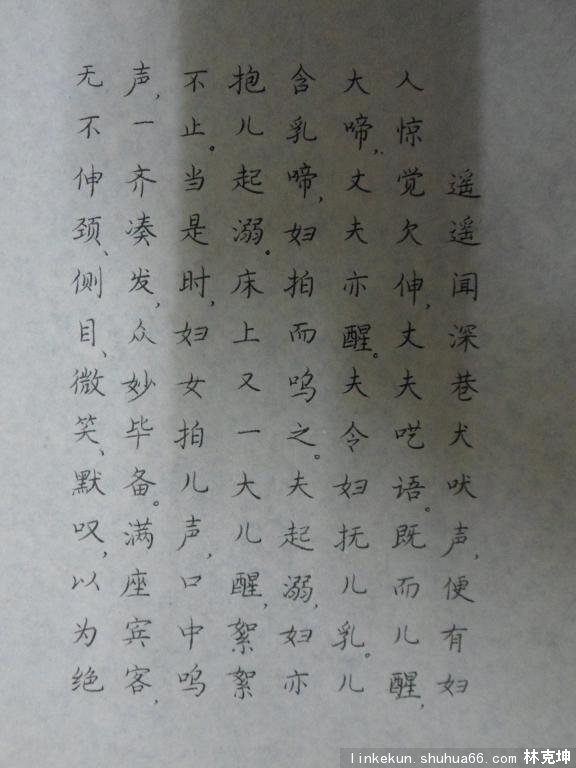 遥遥闻深巷犬吠声，便有妇
人惊觉欠伸，丈夫呓语。既而儿醒，
大啼，丈夫亦醒。夫令妇抚儿乳。儿
含乳啼，妇拍而呜之。夫起溺，妇亦
抱儿起溺。床上又一大儿醒，絮絮
不止。当是时，妇女拍儿声，口中呜
声，一齐凑发，众妙毕备。满座宾客，
无不伸颈、侧目、微笑、默叹，以为绝
linkekun.shuhua66.com 林克坤